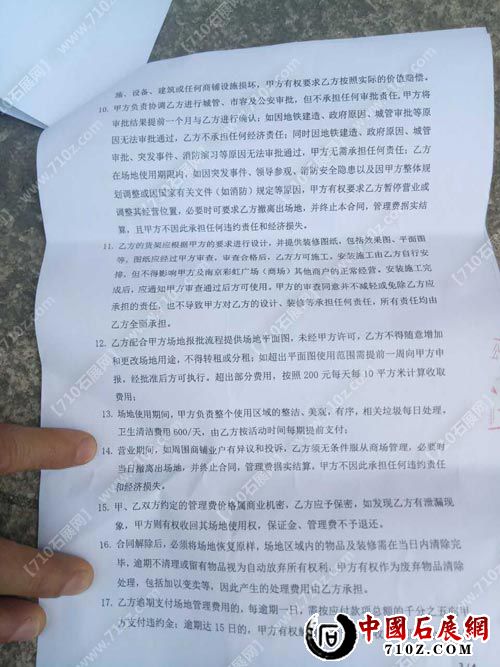 施、设备、建筑或任何商铺设施损坏，甲方有权要求乙方按照实际的价值赔偿。
10. 甲方负责协调乙方进行城管、市容及公安审批，但不承担任何审批责任，甲方将
审批结果提前一个月与乙方进行确认；如因地铁建造、政府原因、城管审批等原
因无法审批通过，乙方不承担任何经济责任；同时因地铁建造、政府原因、城管
审批、突发事件、消防演习等原因无法审批通过，甲方无需承担任何责任；乙方
在场地使用期限内，如因突发事件、领导参观、消防安全隐患以及因甲方整体规
划调整或因国家有关文件（如消防）规定等原因，甲方有权要求乙方暂停营业或
调整其经营位置，必要时可要求乙方撤离出场地，并终止本合同，管理费据实结
算，且甲方不因此承担任何违约责任和经济损失。
11. 乙方的货架应根据甲方的要求进行设计，并提供装修图纸，包括效果图、平面图
等。图纸应经过甲方审查，审查合格后，乙方方可施工，安装施工由乙方自行安
排，但不得影响甲方及南京彩虹广场（商场）其他商户的正常经营，安装施工完
成后，应通知甲方审查通过后方可使用。甲方的审查同意并不减轻或免除乙方应
承担的责任，也不导致甲方对乙方的设计、装修等承担任何责任，所有责任均由
乙方全部承担。
12. 乙方配合甲方场地报批流程提供场地平面图，未经甲方许可，乙方不得随意增加
和更改场地用途，不得转租或分租；如超出平面图使用范围需提前一周向甲方申
报，经批准后方可执行。超出部分费用，按照 200 元每天每 10 平方米计算收取
费用；
13. 场地使用期间，甲方负责整个使用区域的整洁、美观，有序，相关垃圾每日处理，
卫生清洁费用 600/天，由乙方按活动时间每期提前支付；
14. 营业期间，如周围商铺业户有异议和投诉，乙方须无条件服从商场管理，必要时
当日撤离出场地，并终止合同，管理费据实结算。甲方不因此承担任何违约责任
和经济损失。
15. 甲、乙双方约定的管理费价格属商业机密，乙方应予保密，如发现乙方有泄漏现
象，甲方则有权收回其场地使用权，保证金、管理费不予退还。
16. 合同解除后，必须将场地恢复原样，场地区域内的物品及装修需在当日内清除完
毕，逾期不清理或留有物品视为自动放弃所有权利，甲方有权作为废弃物品清除
处理，包括加以变卖等，因此产生的处理费用由乙方承担。
17. 乙方逾期支付场地管理费用的，每逾期一日，需按应付款项总额的千分之五向甲
方支付违约金；逾期达 15 日的，甲方有权
中國石展网
710z.com
【710石展网】
www.710z.com